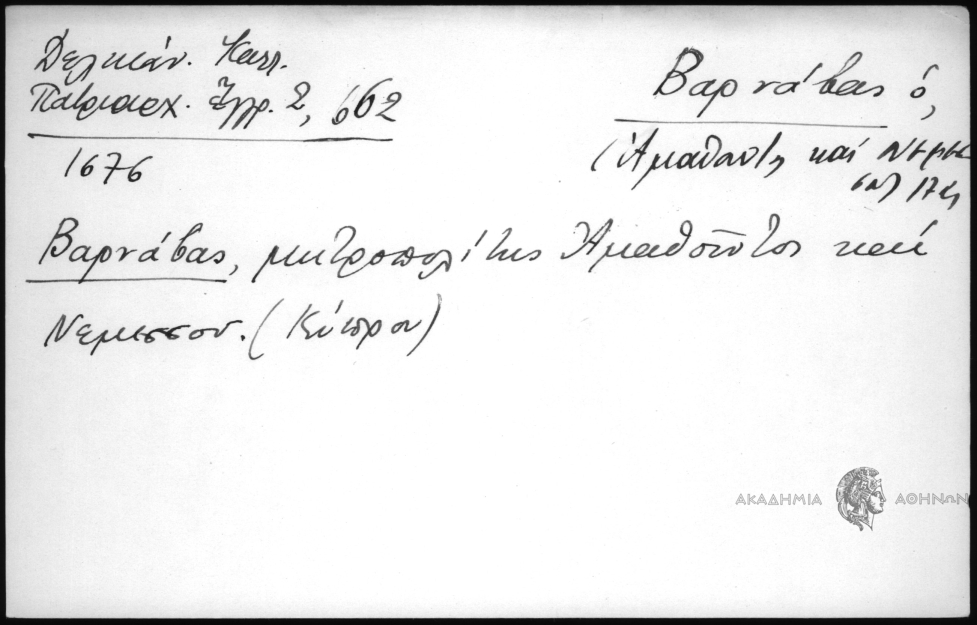 Δελικάν. Καλλ.
Πατριαρχ. Ἔγγρ. 2, 662
1676
Βαρνάβας ὁ,
(Ἀμαθοῦντος καί Νεμε
σοῦ) 17ος
Βαρνάβας, μητροπολίτης Ἀμαθοῦντος καί
Νεμεσσου. (Κύπρου)
ΑΚΑΔΗΜΙΑ ΑΘΗΝΩΝ